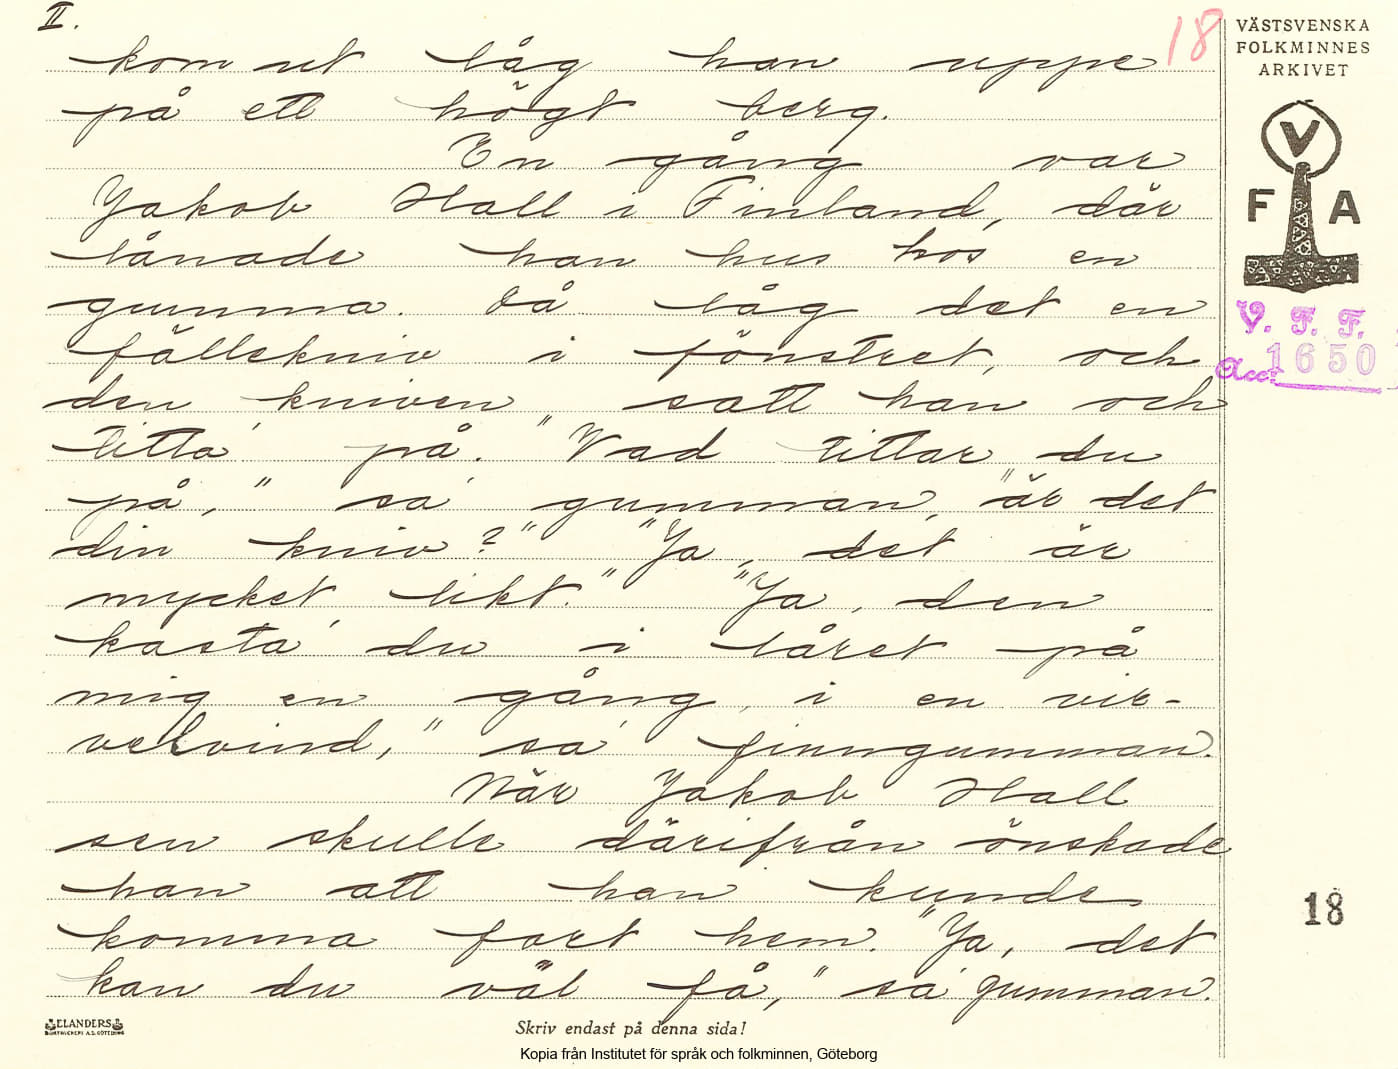 II.
18
kom ut låg han uppe
på ett högt berg.
En gång var
Jakob Hall i Finland, där
lånade han hus hos en
gumma. Då låg det en
fällekniv i fönstret, och
den kniven satt han och
titta' på. "Vad tittar du
på," sa' gumman, "är det
din kniv?" "Ja, det är
mycket likt." "Ja, den
kasta' du i låret på
mig en gång i en vir-
velvind," sa' finngumman.
När Jakob Hall
sen skulle därifrån önskade
han att han kunde
komma fort hem. "Ja, det
kan du väl få," sa' gumman.
VÄSTSVENSKA
FOLKMINNES
ARKIVET
V
F A
V. F. F.
Acc. 1650
18
ELANDERS
BOKTRYCKERI A.B. GÖTEBORG
Skriv endast på denna sida!
Kopia från Institutet för språk och folkminnen, Göteborg